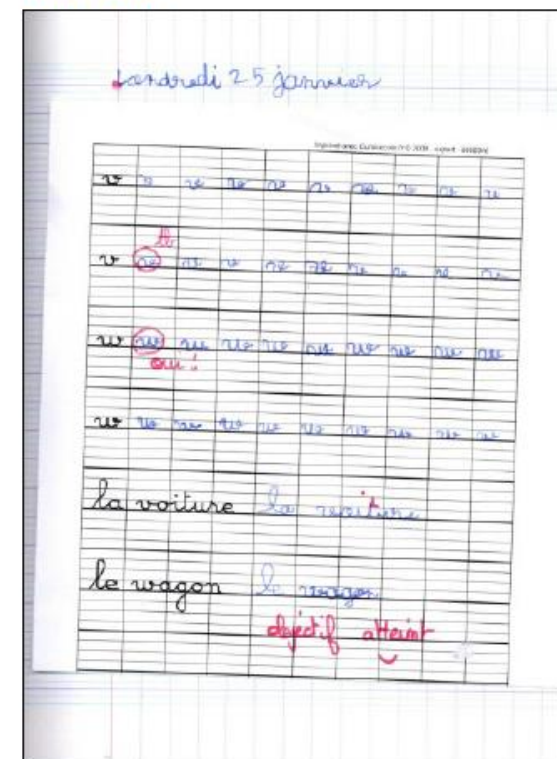 vendredi 25 janvier
v v v v v v v v v v
tb
v v v v v v v v v v
w w w w w w w w w w
oui !
w w w w w w w w w w
la voiture la voiture
le wagon le wagon
objectif atteint